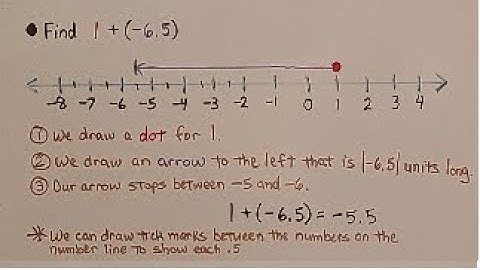 ● Find 1 + (-6.5)
-8 -7 -6 -5 -4 -3 -2 -1 0 1 2 3 4
① We draw a dot for 1.
② We draw an arrow to the left that is |-6.5| units long.
③ Our arrow stops between -5 and -6.
1 + (-6.5) = -5.5
* We can draw tick marks between the numbers on the
number line to show each .5